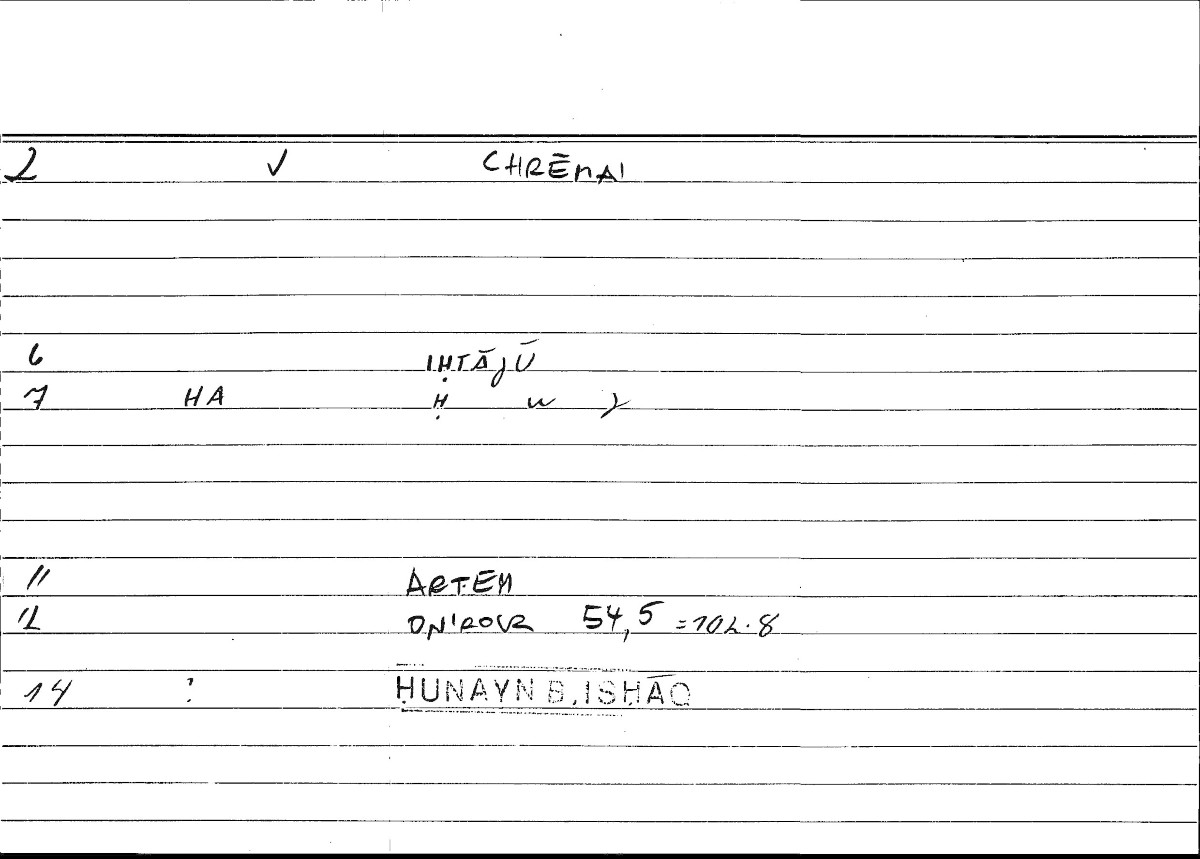 2 √ CHRĒMAI
6 IḤTĀJŪ
7 HA Ḥ w J
11 ARTEM
12 ONIROCR 54,5 = 102.8
14 ? ḤUNAYN B. ISḤĀQ